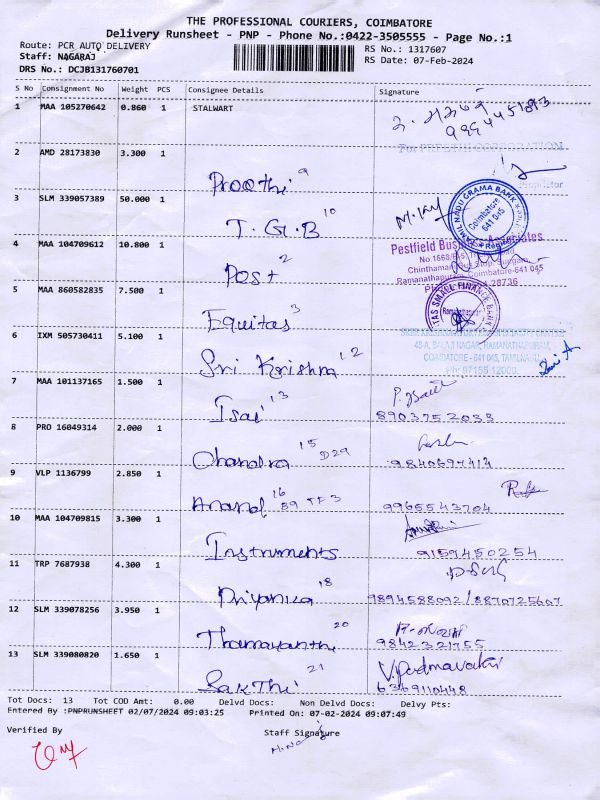 THE PROFESSIONAL COURIERS, COIMBATORE
Delivery Runsheet - PNP - Phone No.:0422-3505555 - Page No.:1
Route: PCR AUTO DELIVERY RS No.: 1317607
Staff: NAGARAJ RS Date: 07-Feb-2024
DRS No.: DCJB131760701
S No Consignment No Weight PCS Consignee Details Signature
1 MAA 105270642 0.860 1 STALWART
9994451893
2 AMD 28173830 3.300 1
Proprietor
Preethi 9
3 SLM 339057389 50.000 1
TAMIL NADU GRAMA BANK
Coimbatore
641 045
T.G.B 10
4 MAA 104709612 10.800 1
Pestfield Business Associates
Ramanathapuram, Coimbatore-641 045
Post 2
5 MAA 860582835 7.500 1
Equitas 3
6 IXM 505730411 5.100 1
48-A, BALAJI NAGAR, RAMANATHAPURAM,
COIMBATORE - 641 045, TAMILNADU
Ph: 97155 12000
Sri Krishna 12
7 MAA 101137165 1.500 1
Isai 13 8903752033
8 PRO 16049314 2.000 1
Chandra 15 D29 9840697414
9 VLP 1136799 2.850 1
Anand 16 89 TF3 9965543704
10 MAA 104709815 3.300 1
Instruments 9159450254
11 TRP 7687938 4.300 1
Priyanka 18 9894588092/8870725607
12 SLM 339078256 3.950 1
Thamayanthi 20 9842321755
13 SLM 339080820 1.650 1 V. Padmavathi
Sakthi 21 6369110448
Tot Docs: 13 Tot COD Amt: 0.00 Delvd Docs: Non Delvd Docs: Delvy Pts:
Entered By :PNPRUNSHEET 02/07/2024 09:03:25 Printed On: 07-02-2024 09:07:49
Verified By Staff Signature